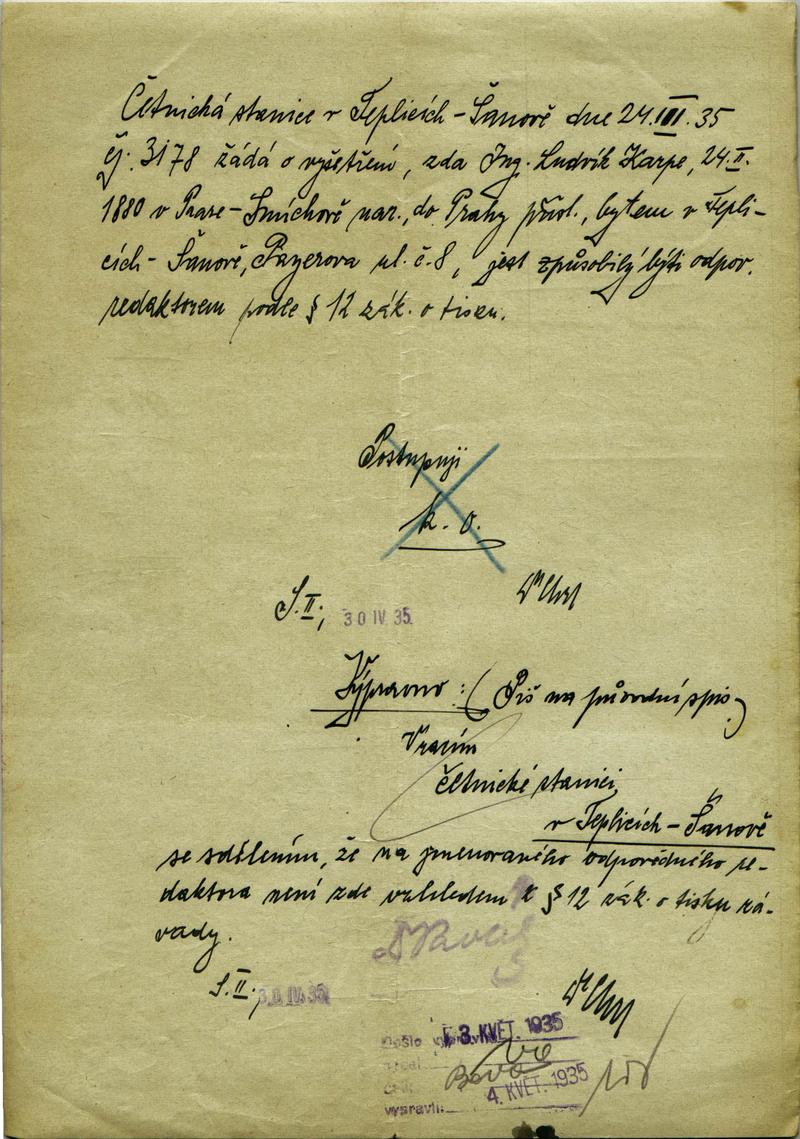 Četnická stanice v Teplicích-Šanově dne 24.III.35
čj. 3178 žádá o vyšetření, zda Ing. Ludvík Karpe, 24.II.
1880 v Praze-Smíchově nar., do Prahy přísl., bytem v Tepli-
cích-Šanově, Payerova ul. č. 8, jest způsobilý býti odpov.
redaktorem podle § 12 zák. o tisku.
Postupuji
k. o.
S.II; 30 IV. 35.
Výpravno: (Piš na původní spis)
Vracím
četnické stanici
v Teplicích-Šanově
se sdělením, že na jmenovaného odpovědného re-
daktora není zde vzhledem k § 12 zák. o tisku zá-
vady.
S.II., 30. IV. 35.
Došlo výpravně 3. KVĚT. 1935
4. KVĚT. 1935
vypravil: